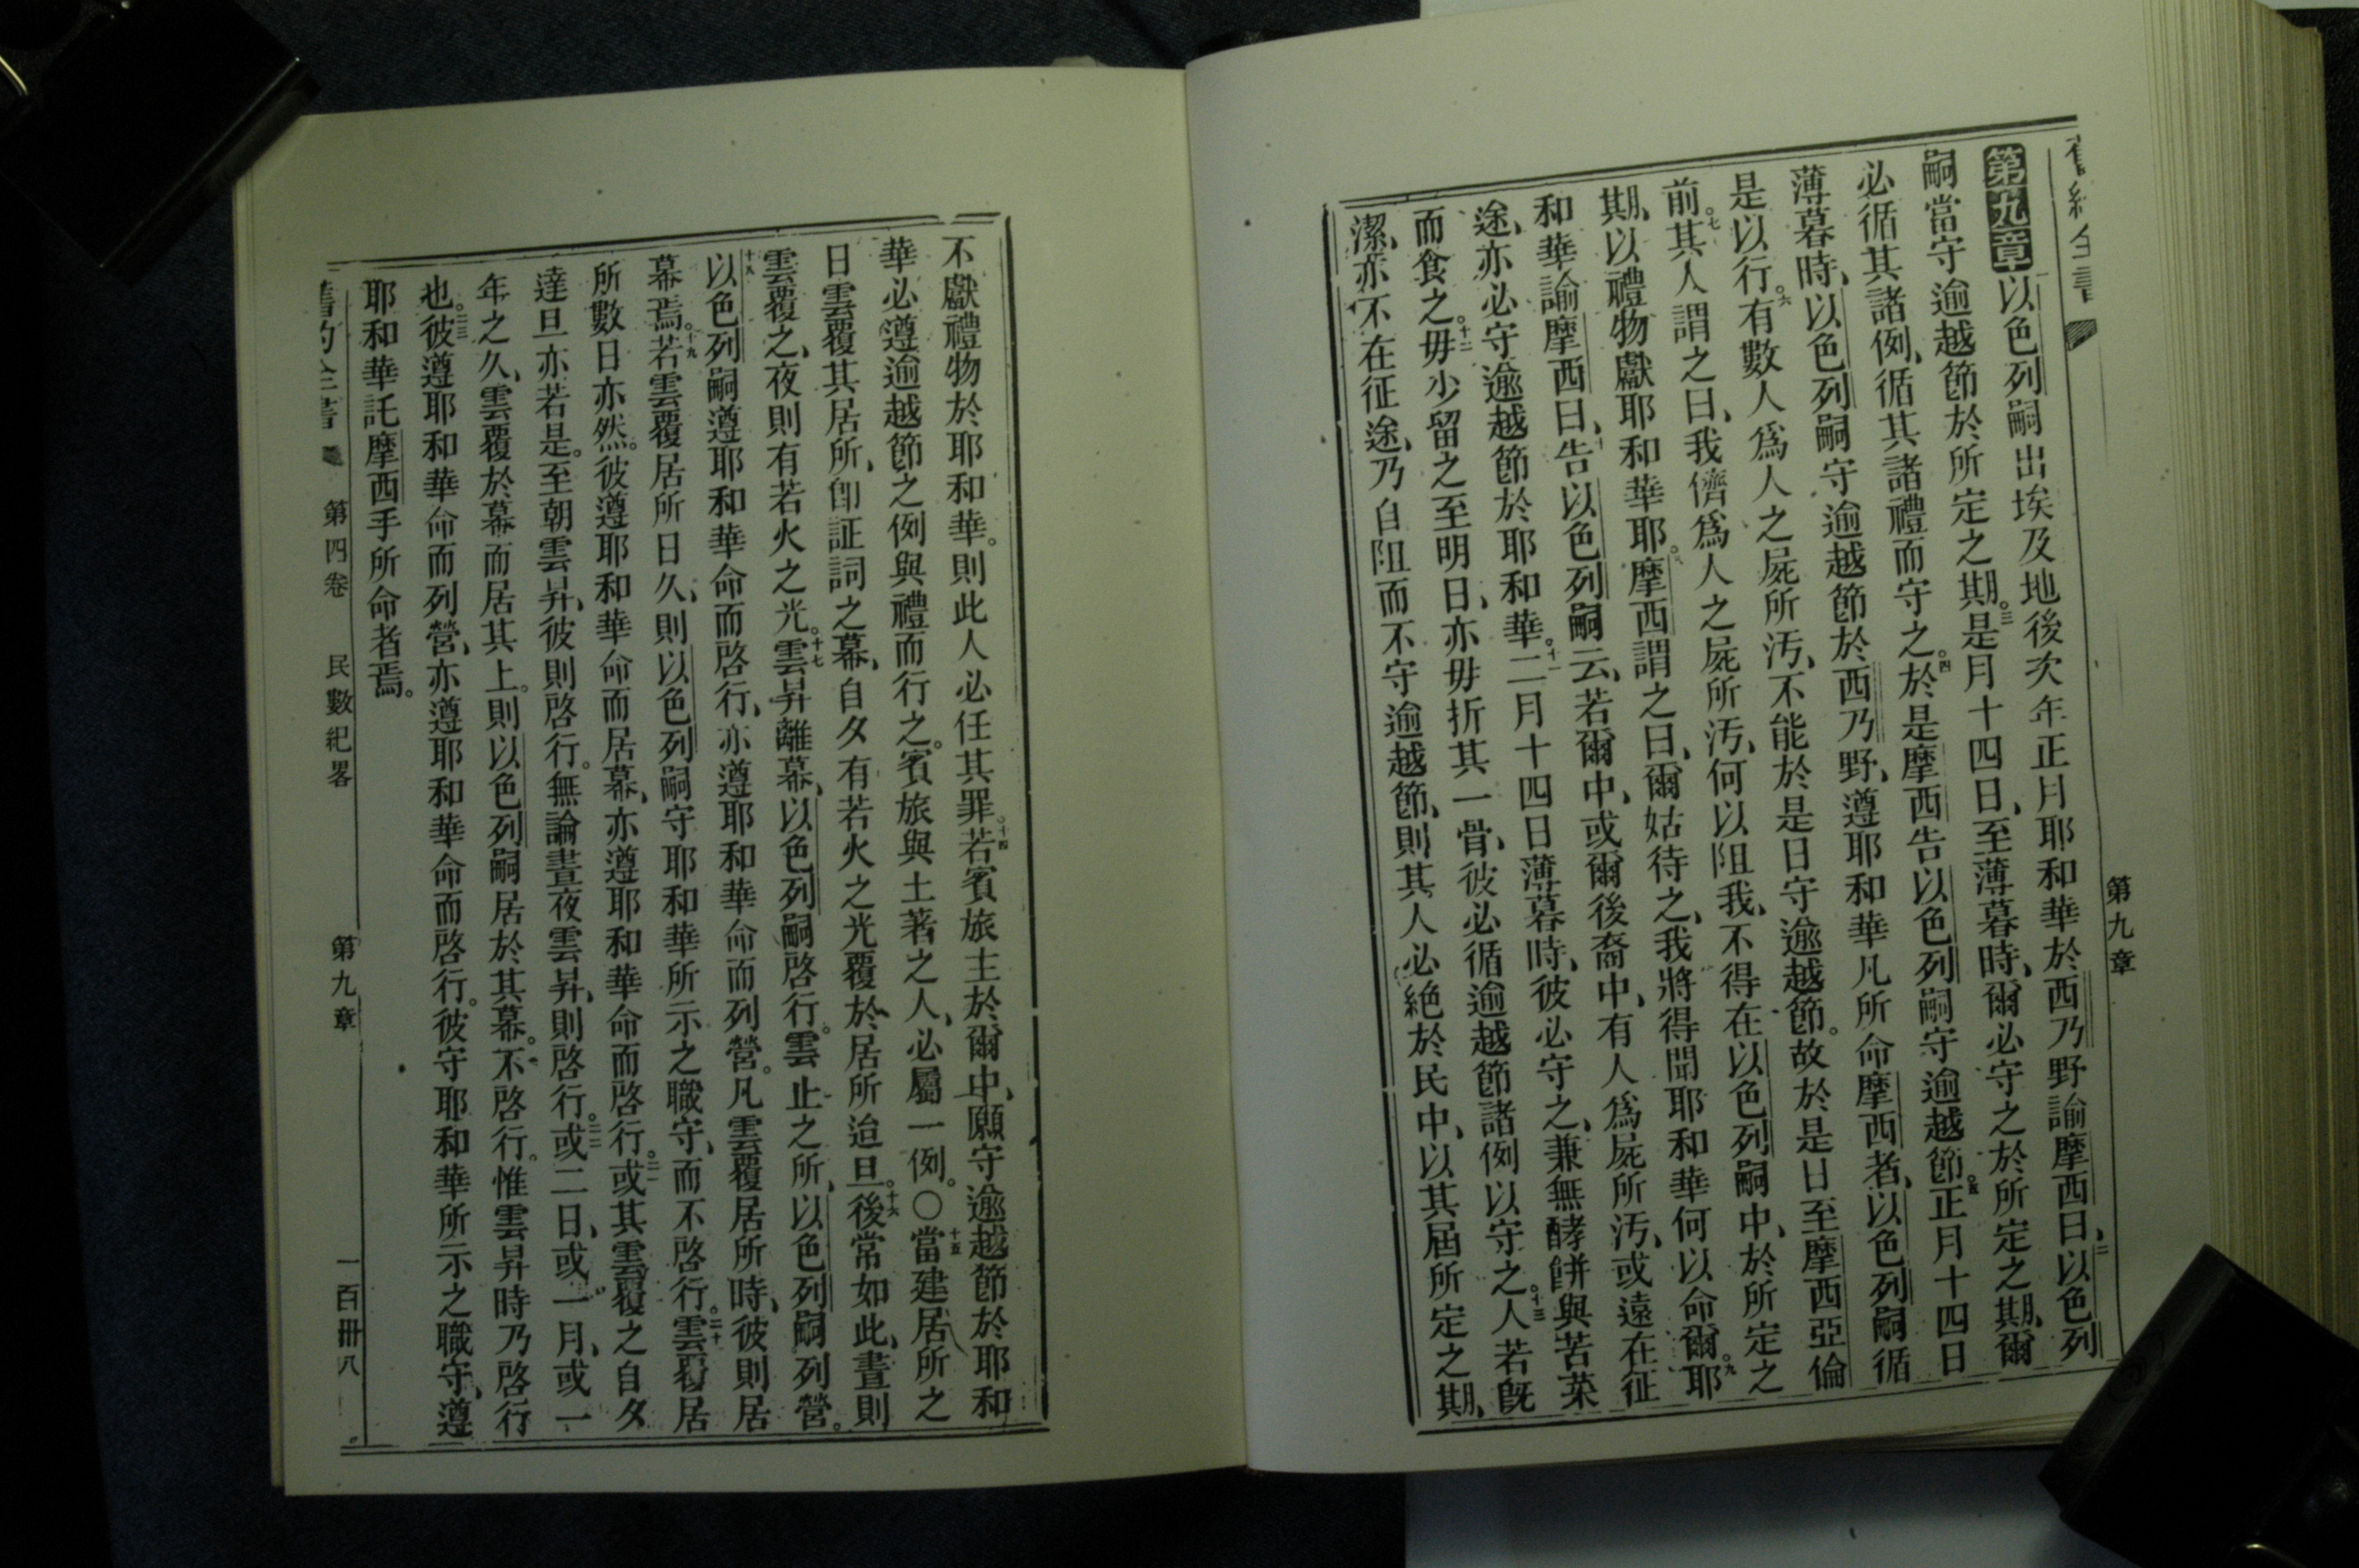 第九章以色列嗣出埃及地後次年正月耶和華於西乃野諭摩西曰、二以色列
嗣當守逾越節於所定之期。三是月十四日、至薄暮時、爾必守之於所定之期、爾
必循其諸例、循其諸禮而守之。四於是摩西告以色列嗣守逾越節。五正月十四日
薄暮時、以色列嗣守逾越節於西乃野、遵耶和華凡所命摩西者、以色列嗣循
是以行。六有數人爲人之屍所汚、不能於是日守逾越節。故於是日至摩西亞倫
前。七其人謂之曰、我儕爲人之屍所汚、何以阻我、不得在以色列嗣中、於所定之
期、以禮物獻耶和華耶。八摩西謂之曰、爾姑待之、我將得聞耶和華何以命爾。九耶
和華諭摩西曰、十告以色列嗣云、若爾中、或爾後裔中、有人爲屍所汚、或遠在征
途、亦必守逾越節於耶和華。十一二月十四日薄暮時、彼必守之、兼無酵餅與苦菜
而食之。十二毋少留之至明日、亦毋折其一骨、彼必循逾越節諸例以守之。十三人若旣
潔、亦不在征途、乃自阻而不守逾越節、則其人必絕於民中、以其屆所定之期、
第九章
不獻禮物於耶和華。則此人必任其罪。十四若賓旅主於爾中、願守逾越節於耶和
華必遵逾越節之例與禮而行之。賓旅與土著之人、必屬一例。○十五當建居所之
日雲覆其居所、卽証詞之幕、自夕有若火之光覆於居所迨旦。十六後常如此、晝則
雲覆之、夜則有若火之光。十七雲昇離幕、以色列嗣啓行。雲止之所、以色列嗣列營。
十八以色列嗣遵耶和華命而啓行、亦遵耶和華命而列營。凡雲覆居所時、彼則居
幕焉。十九若雲覆居所日久、則以色列嗣守耶和華所示之職守、而不啓行。二十雲覆居
所數日亦然。彼遵耶和華命而居幕、亦遵耶和華命而啓行。二一或其雲覆之自夕
達旦亦若是。至朝雲昇、彼則啓行。無論晝夜雲昇、則啓行。二二或二日、或一月、或一
年之久、雲覆於幕而居其上。則以色列嗣居於其幕。不啓行。惟雲昇時乃啓行
也。二三彼遵耶和華命而列營、亦遵耶和華命而啓行。彼守耶和華所示之職守、遵
耶和華託摩西手所命者焉。
舊約全書 第四卷 民數紀畧 第九章 一百卅八